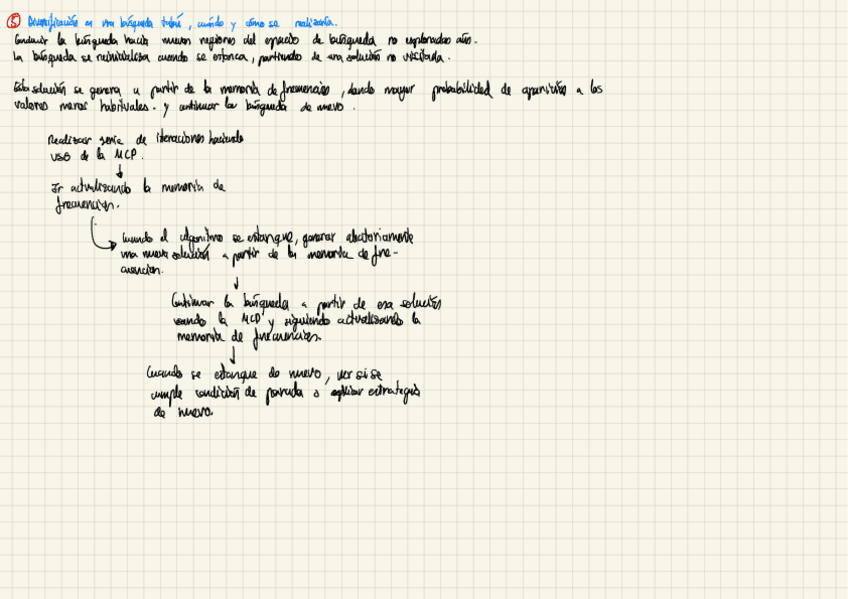 ⑤ Diversificación en una búsqueda tabú, cuándo y cómo se realizaría.
Conducir la búsqueda hacia nuevas regiones del espacio de búsqueda no exploradas aún.
La búsqueda se reinicializa cuando se estanca, partiendo de una solución no visitada.
Esta solución se genera a partir de la memoria de frecuencias, dando mayor probabilidad de aparición a los
valores menos habituales. y continuar la búsqueda de nuevo.
Realizar serie de iteraciones haciendo
uso de la MCP.
↓
Ir actualizando la memoria de
frecuencias.
Cuando el algoritmo se estanque, generar aleatoriamente
una nueva solución a partir de la memoria de fre-
cuencias.
↓
Continuar la búsqueda a partir de esa solución
usando la MCP y siguiendo actualizando la
memoria de frecuencias.
↓
Cuando se estanque de nuevo, ver si se
cumple condición de parada o aplicar estrategia
de nuevo.